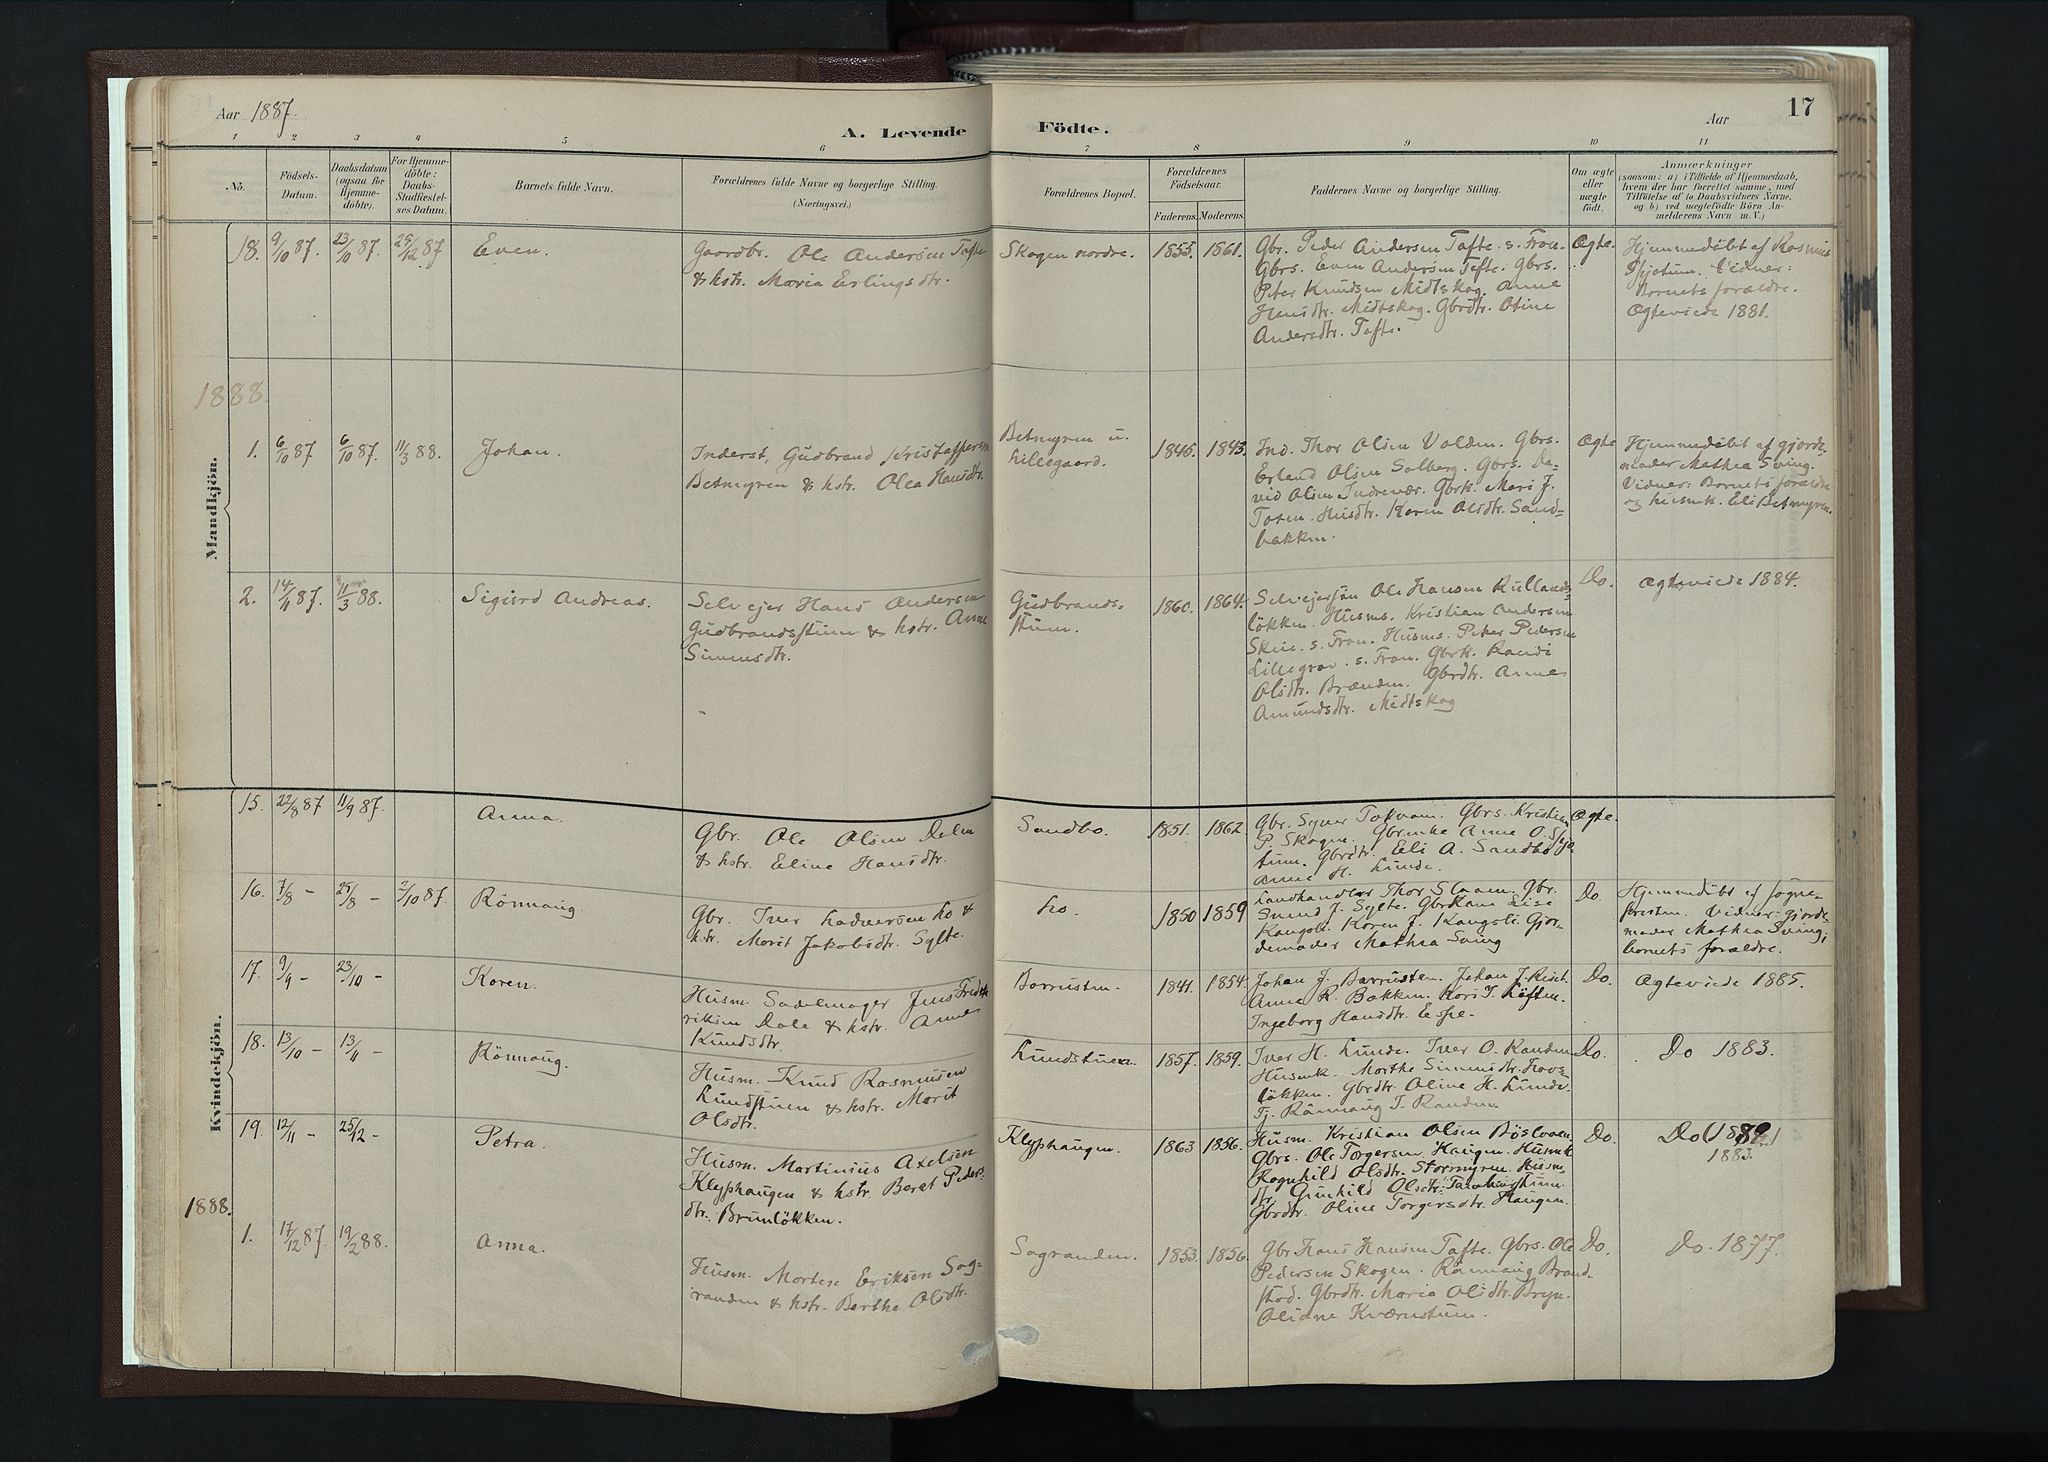 Aar 1887.
A. Levende Födte.
Aar
17
1 2 3 4 5 6 7 8 9 10 11
No.
Födsels-
Datum.
Daabsdatum
(ogsaa for
Hjemme-
döbte).
For Hjemme-
döbte:
Daabs-
Stadfæstel-
ses Datum.
Barnets fulde Navn.
Forældrenes fulde Navne og borgerlige Stilling.
(Næringsvei.)
Forældrenes Bopæl.
Forældrenes
Födselsaar.
Faderens. Moderens.
Faddernes Navne og borgerlige Stilling.
Om ægte
eller
uægte
födt.
Anmærkninger
(saasom: a) i Tilfælde af Hjemmedaab,
hvem der har forrettet samme, med
Tilföielse af to Daabsvidners Navne,
og b) ved uægtefödte Börn An-
melderens Navn m. V.)
Mandkjön.
18. 9/10 87. 23/10 87. 25/12 87 Even.
Gaardbr. Ole Andersen Tafte
& hstr. Maria Erlingsdtr.
Skogen nordre. 1855. 1861.
Gbr. Peder Andersen Tafte. s. Fron.
Gbrs. Even Andersen Tofte. Gbrs.
Peter Knudsen Midtskog. Anne
Hansdtr. Midtskog. Gbrdtr. Oline
Andersdtr. Tofte.
Ægte.
Hjemmedöbt af Rasmus
Vidner:
Barnets forældre.
Ægteviede 1881.
1888.
1. 6/10 87 6/10 87. 11/3 88. Johan.
Inderst, Gudbrand Kristoffersen
Betmyren & hstr. Olea Hansdtr.
Betmyren u.
Lillegaard. 1845. 1843.
Ind. Thor Olsen Volden. Gbrs.
Erland Olsen Solberg. Gbrs. Da=
vid Olsen
Mari J.
Toten. Husdtr. Karen Olsdtr. Sand=
bakken.
Ægte
Hjemmedöbt af gjorde-
moder Mathea Sving.
Vidner: Barnets forældre
og husmk. Eli Betmyren.
2. 14/11 87. 11/3 88. Sigurd Andreas.
Selvejer Hans Andersen
Gudbrandsstuen & hstr. Anne
Simensdtr.
Gudbrands-
stuen. 1860. 1864.
Selvejersön Ole Hansen Rullands-
lökken. Husms. Kristian Andersen
s. Fron. Husms. Peter Pedersen
Lillegrav. s. Fron. Gbrk. Randi
Olsdtr. Brænden. Gbrdtr. Anne
Amundsdtr. Midtskog
Do.
Ægteviede 1884.
Kvindekjön.
15. 22/8 87 11/9 87. Anna.
Gbr. Ole Olsen Dalen
& hstr. Eline Hansdtr.
Sandbo. 1851. 1862.
Gbr. Syver Tokvam. Gbrs. Kristian
P. Skogen. Gbrenke Anne O. Skjø-
tum. Gbrdtr. Eli A. Sandbo
Anne H. Lunde.
Ægte.
16. 7/8 - 25/8 - 2/10 87. Rönnaug.
Gbr. Iver Ladversen Lo &
hstr. Marit Jakobsdtr. Sylte.
Lo. 1850 1859
Landhandler Thor Slaaen. Gbr.
J. Sylte. Gbrkone Lise
Kangsli. Karen J. Kangsli. Gjor-
demoder Mathea Sving
Do.
Hjemmedöbt af sogne-
presten. Vidner: gjorde-
moder Mathea Sving,
barnets forældre.
17. 9/9 - 23/10 - Karen.
Husm. Sadelmager Jens Fride-
riksen Dale & hstr. Anne
Knudsdtr.
Borrusten. 1841. 1854.
Johan J. Borrusten. Johan J.
Anne R. Bakken. Kari T. Löften.
Ingeborg Hansdtr. Espe.
Do.
Ægteviede 1885.
18. 13/10 - 13/11 - Rönnaug.
Husm. Knud Rasmusen
Lundstuen & hstr. Marit
Olsdtr.
Lundstuen. 1857. 1859.
Iver H. Lunde. Iver O. Randen
Husmk. Marthe Simensdtr. Hovs-
lökken. Gbrdtr. Oline H. Lunde.
Tj. Rönnaug T. Randen.
Do.
Do 1883.
19. 12/11 - 25/12 - Petra.
Husm. Martinius Axelsen
Klyphaugen & hstr. Beret Peders-
dtr. Brunlökken.
Klyphaugen. 1863 1856.
Husm. Kristian Olsen
Gbrs. Ole Torgersen Haugen. Husmk
Ragnhild Olsdtr. Stormyren. Husm.
dtr. Gunhild Olsdtr.
Gbrdtr. Oline Torgersdtr. Haugen.
Do.
Do
1883.
1888.
1. 17/12 87. 19/2 88. Anna.
Husm. Morten Eriksen Sog-
randen & hstr. Berthe Olsdtr.
Sogranden. 1853. 1856.
Gbr. Hans Hansen Tafte. Gbrs. Ole
Pedersen Skogen. Rönnaug Brand-
stad. Gbrdtr. Maria Olsdtr. Bryn.
Oliane Kværnstuen.
Do.
Do. 1877.